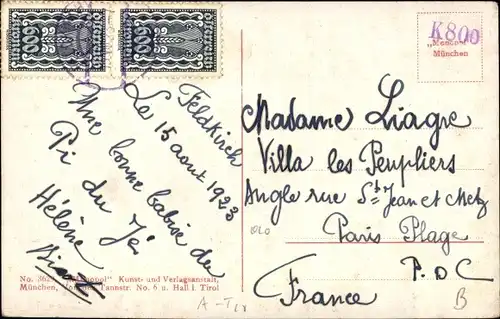 600
600
K800
„Monopol"
München
Feldkirch
Le 15 aout 1923
Une bonne
du
Hélène
Madame Liagre
Villa les Peupliers
Angle rue St Jean et Metz
Paris Plage
P.D.C
France
No. "Monopol" Kunst- und Verlagsanstalt,
München, Tannstr. No. 6 u. Hall i. Tirol
B